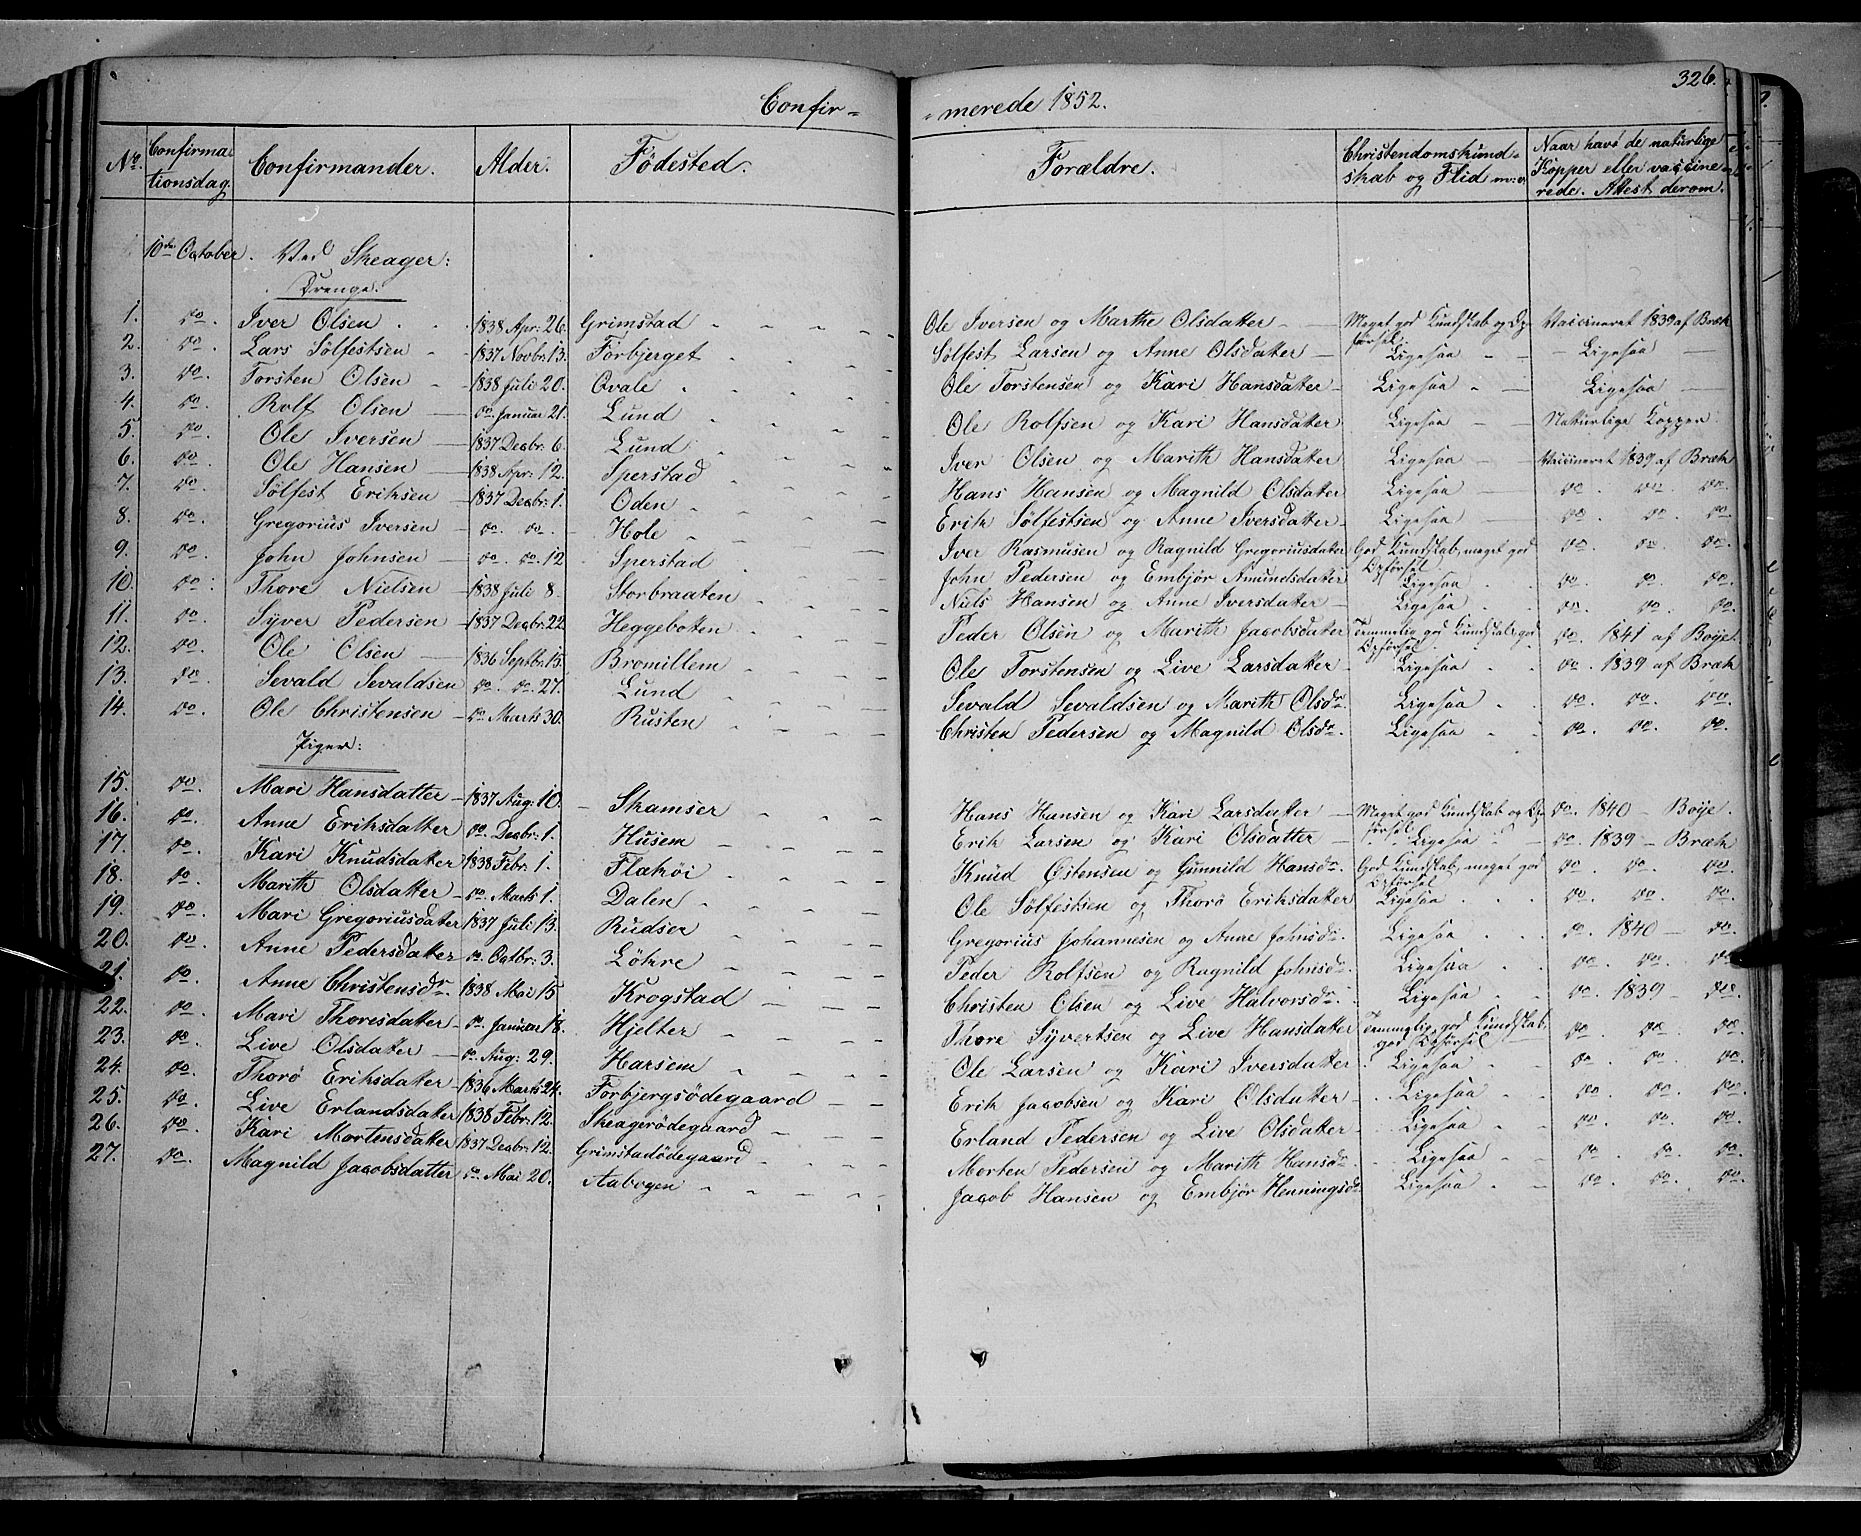 326.
Confir- -merede 1852.
No. Confirmationsdag. Confirmander. Alder. Födested. Forældre. Christendomskundskab og Flid m: v: Naar havt de naturlige Kopper eller vaccinerede. Attest derom.
10de October. Ved Skeager:
Drenge.
1. do. Iver Olsen 1838 Apr: 26. Grimstad Ole Iversen og Marthe Olsdatter Meget god Kundskab og Opførsel. Vaccineret 1839 af Bræk
2. do. Lars Sölfestsen 1837 Novbr: 13. Forbjerget Sölfest Larsen og Anne Olsdatter Ligesaa Ligesaa
3. do. Torsten Olsen 1838 Juli 20. Qvale Ole Torstensen og Kari Hansdatter Ligesaa Ligesaa
4. do. Rolf Olsen do. Januar 21. Lund Ole Rolfsen og Kari Hansdatter Ligesaa Naturlige Kopper.
5. do. Ole Iversen 1837 Decbr: 6. Lund Iver Olsen og Marith Hansdatter Ligesaa Vaccineret 1839 af Bræk
6. do. Ole Hansen 1838 Apr: 12. Sperstad Hans Hansen og Magnild Olsdatter Ligesaa do. do. do.
7. do. Sölfest Eriksen 1837 Decbr: 1. Oden Erik Sölfestsen og Anne Iversdatter Ligesaa do. do. do.
8. do. Gregorius Iversen do. do. Hole Iver Rasmusen og Ragnild Gregoriusdatter God Kundskab, meget god Opførsel. do. do. do.
9. do. John Johnsen do. do. 12 Sperstad John Pedersen og Embjör Amundsdatter Ligesaa do. do. do.
10. do. Thore Nielsen 1838 Juli 8. Storbraaten Niels Hansen og Anne Iversdatter Ligesaa do. do. do.
11. do. Syver Pedersen 1837 Decbr: 22 Heggebotten Peder Olsen og Marith Jacobsdatter Temmelig god Kundskab, god Opførsel. do. 1841 af Boye.
12. do. Ole Olsen 1836 Septbr: 15. Bromillem Ole Torstensen og Live Larsdatter Ligesaa do. 1839 af Bræk
13. do. Sevald Sevaldsen do. do. 27. Lund Sevald Sevaldsen og Marith Olsdr. Ligesaa do. do. do.
14. do. Ole Christensen do. Marts 30. Rusten Christen Pedersen og Magnild Olsdr. Ligesaa do. do. do.
Piger:
15. do. Mari Hansdatter 1837 Aug: 10. Skamser Hans Hansen og Kari Larsdatter Meget god Kundskab og Opførsel do. 1840 - Boye.
16. do. Anne Eriksdatter do. Decbr: 1. Husem Erik Larsen og Kari Olsdatter Ligesaa do. 1839 - Bræk
17. do. Kari Knudsdatter 1838 Febr: 1. Flaköi Knud Östensen og Gunnild Hansdr. God Kundskab, meget god Opførsel do. do. do.
18. do. Marith Olsdatter do. Marts 1. Dalen Ole Sölfestsen og Thorö Eriksdatter Ligesaa do. do. do.
19. do. Mari Gregoriusdatter 1837 Juli 13. Rudser Gregorius Johannesen og Anne Johnsdr. Ligesaa do. 1840 - do.
20. do. Anne Pedersdatter do. Octbr: 3. Löhre Peder Rolfsen og Ragnild Johnsdr. Ligesaa do. do. do.
21. do. Anne Christensdr. 1838 Mai 15. Krogstad Christen Olsen og Live Halvorsdr. Ligesaa do. 1839 - do.
22. do. Mari Thoresdatter do. Januar 18. Hjelter Thore Syvertsen og Live Hansdatter Temmelig god Kundskab, god Opførsel do. do. do.
23. do. Live Olsdatter do. Aug: 29. Harsem Ole Larsen og Kari Iversdatter Ligesaa do. do. do.
24. do. Thorö Eriksdatter 1836 Marts 24. Forbjergsödegaard Erik Jacobsen og Kari Olsdatter Ligesaa do. do. do.
25. do. Live Erlandsdatter 1838 Febr: 12. Skeagerödegaard Erland Pedersen og Live Olsdatter Ligesaa do. do. do.
26. do. Kari Mortensdatter 1837 Decbr: 12. Grimstadödegaard Morten Pedersen og Marith Hansdr. Ligesaa do. do. do.
27. do. Magnild Jacobsdatter do. Mai 20. Aabogen Jacob Hansen og Embjör Henningsdr Ligesaa do. do. do.